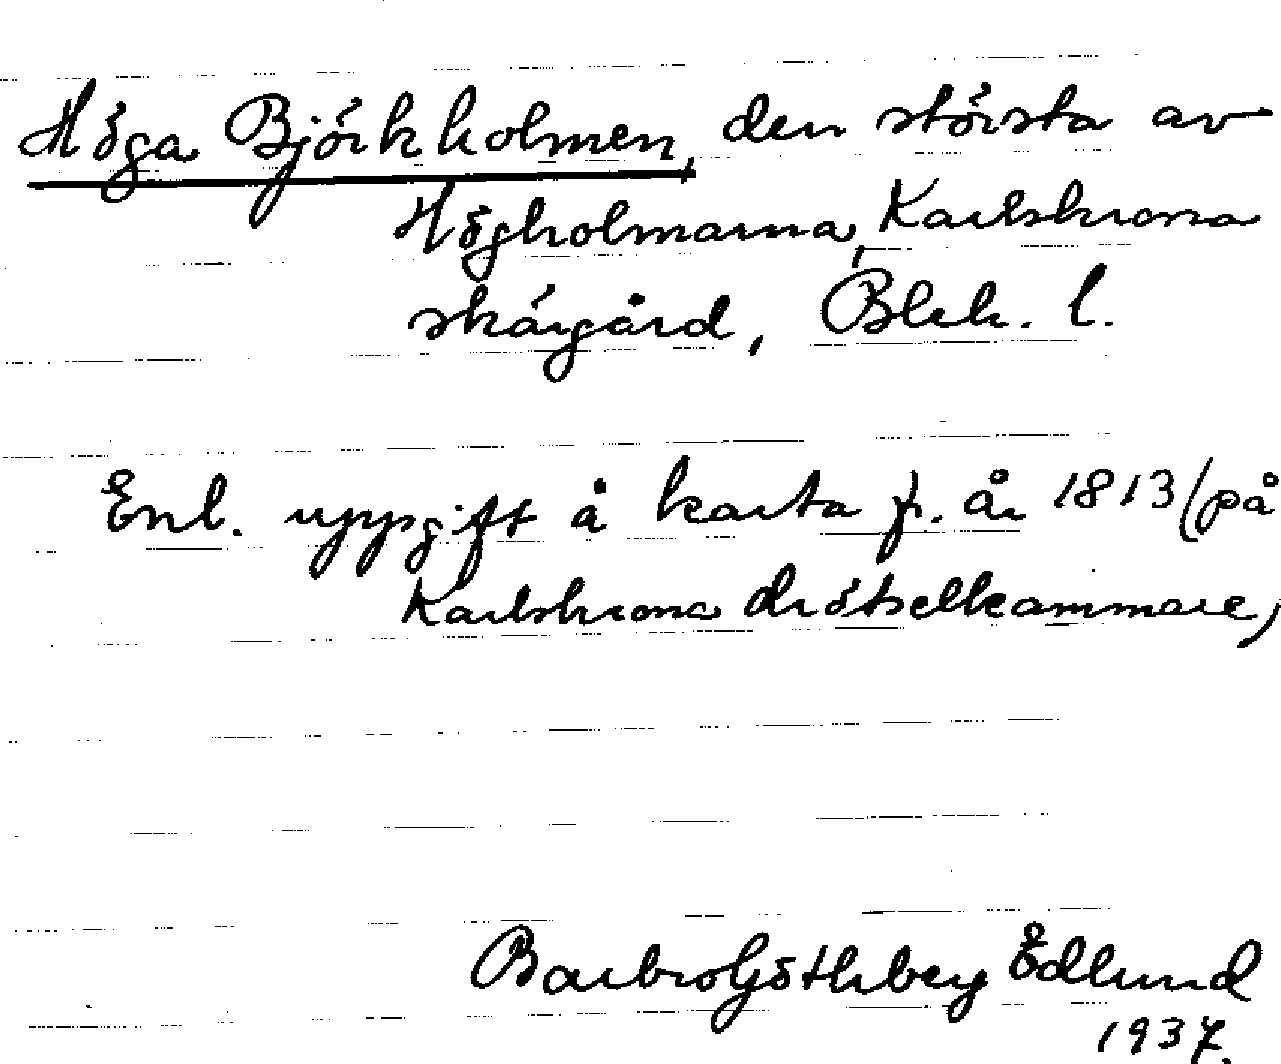 Höga Björkholmen, den största av
Högholmarna, Karlskrona
skärgård, Blek. l.
Enl. uppgift å karta fr. år 1813 (på
Karlskrona drätselkammare)
Barbro Götherberg Edlund
1937.